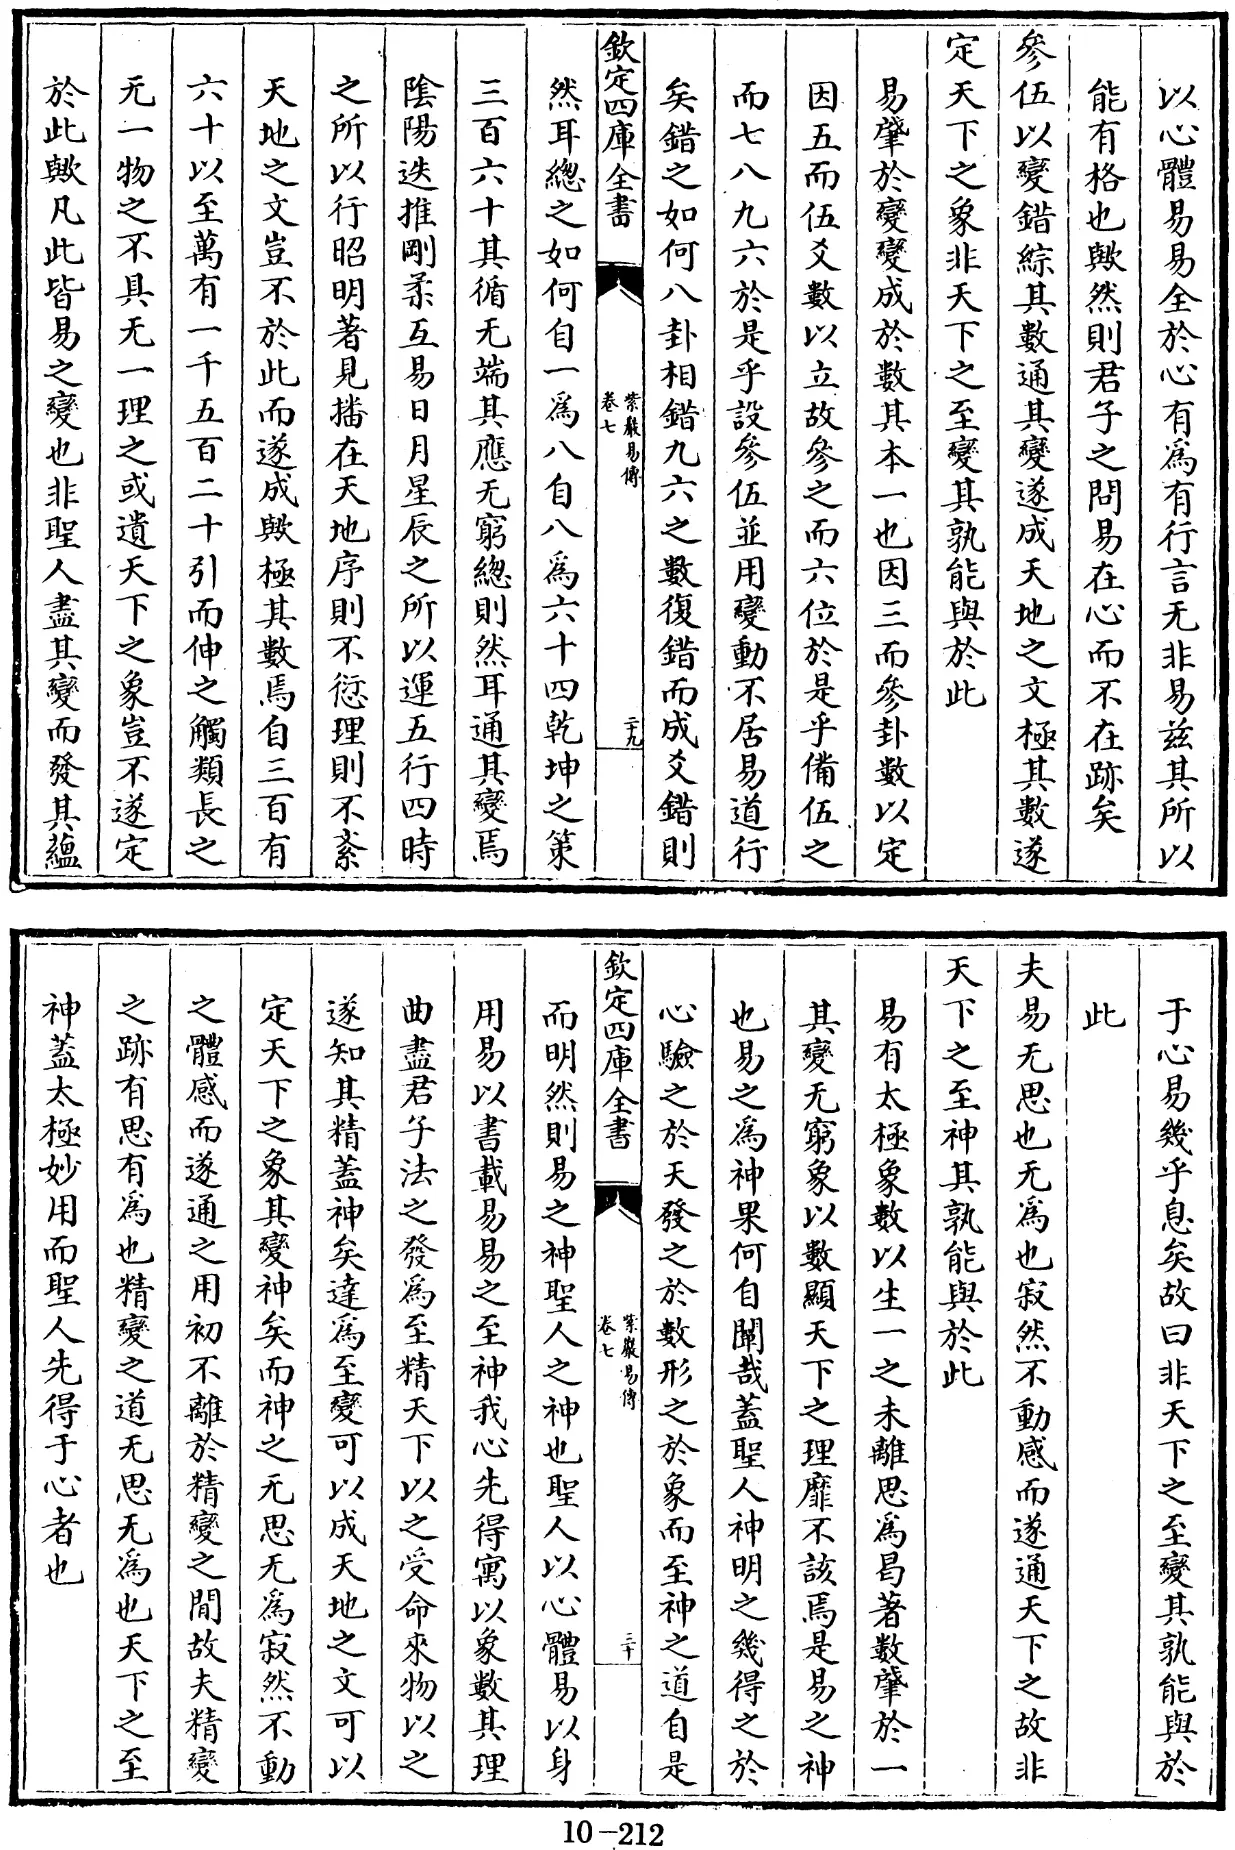 以心體易易全於心有爲有行言无非易兹其所以
能有格也歟然則君子之問易在心而不在跡矣
參伍以變錯綜其數通其變遂成天地之文極其數遂
定天下之象非天下之至變其孰能與於此
易肇於變變成於數其本一也因三而參卦數以定
因五而伍爻數以立故參之而六位於是乎備伍之
而七八九六於是乎設參伍並用變動不居易道行
矣錯之如何八卦相錯九六之數復錯而成爻錯則
欽定四庫全書
紫巖易傳
卷七
二十九
然耳總之如何自一爲八自八爲六十四乾坤之策
三百六十其循无端其應无窮總則然耳通其變焉
陰陽迭推剛柔互易日月星辰之所以運五行四時
之所以行昭明著見播在天地序則不愆理則不紊
天地之文豈不於此而遂成歟極其數焉自三百有
六十以至萬有一千五百二十引而伸之觸類長之
无一物之不具无一理之或遺天下之象豈不遂定
於此歟凡此皆易之變也非聖人盡其變而發其蘊
于心易幾乎息矣故曰非天下之至變其孰能與於
此
夫易无思也无爲也寂然不動感而遂通天下之故非
天下之至神其孰能與於此
易有太極象數以生一之未離思爲曷著數肇於一
其變无窮象以數顯天下之理靡不該焉是易之神
也易之爲神果何自闡哉蓋聖人神明之幾得之於
心驗之於天發之於數形之於象而至神之道自是
欽定四庫全書
紫巖易傳
卷七
三十
而明然則易之神聖人之神也聖人以心體易以身
用易以書載易易之至神我心先得寓以象數其理
曲盡君子法之發爲至精天下以之受命來物以之
遂知其精蓋神矣達爲至變可以成天地之文可以
定天下之象其變神矣而神之无思无爲寂然不動
之體感而遂通之用初不離於精變之間故夫精變
之跡有思有爲也精變之道无思无爲也天下之至
神蓋太極妙用而聖人先得于心者也
10-212